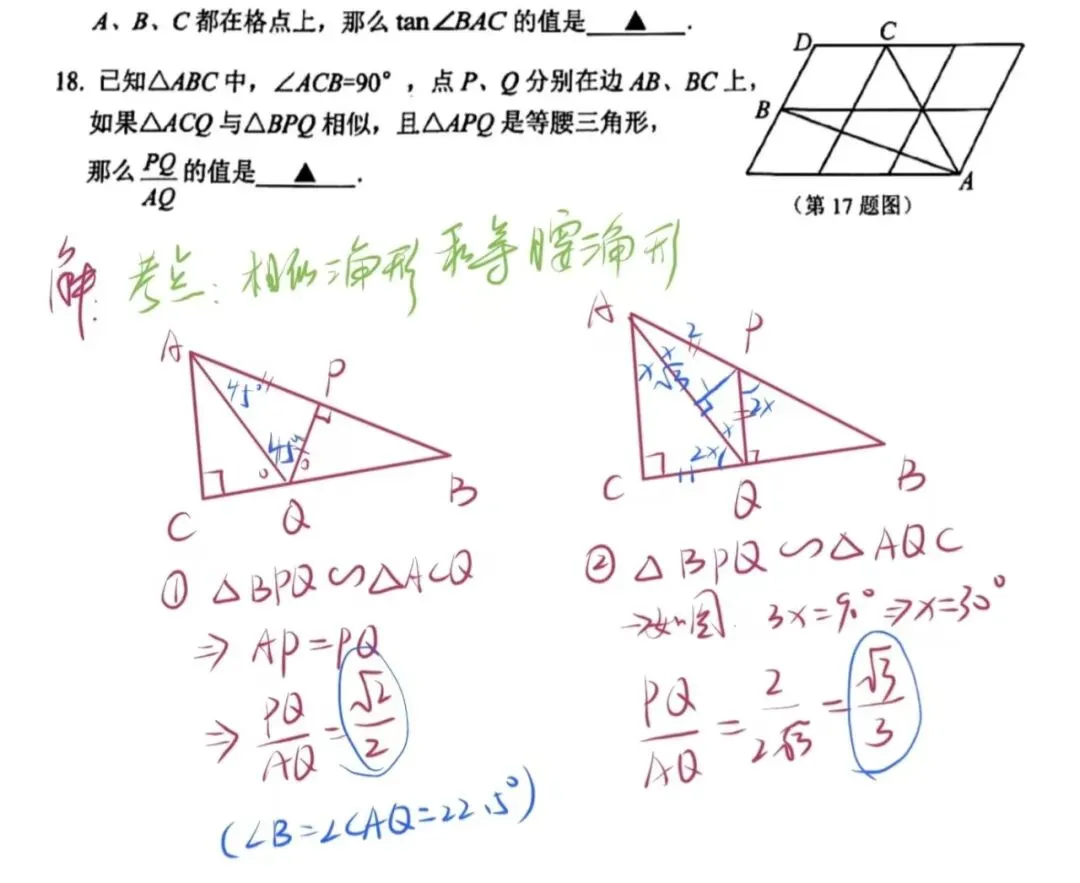 A、B、C 都在格点上，那么 tan∠BAC 的值是 ▲ .
18. 已知△ABC 中，∠ACB=90°，点 P、Q 分别在边 AB、BC 上，
如果△ACQ 与△BPQ 相似，且△APQ 是等腰三角形，
那么 PQ/AQ 的值是 ▲ .
D C
B
A
（第 17 题图）
解: 考点: 相似三角形 和等腰三角形
A P
45°
45°
C Q B
A 2 P
x x√3 2x
x
2x
C Q B
① △BPQ∽△ACQ
⇒ AP=PQ
⇒ PQ/AQ = √2/2
(∠B=∠CAQ=22.5°)
② △BPQ∽△AQC
→如图 3x=90°⇒x=30°
PQ/AQ = 2/2√3 = √3/3